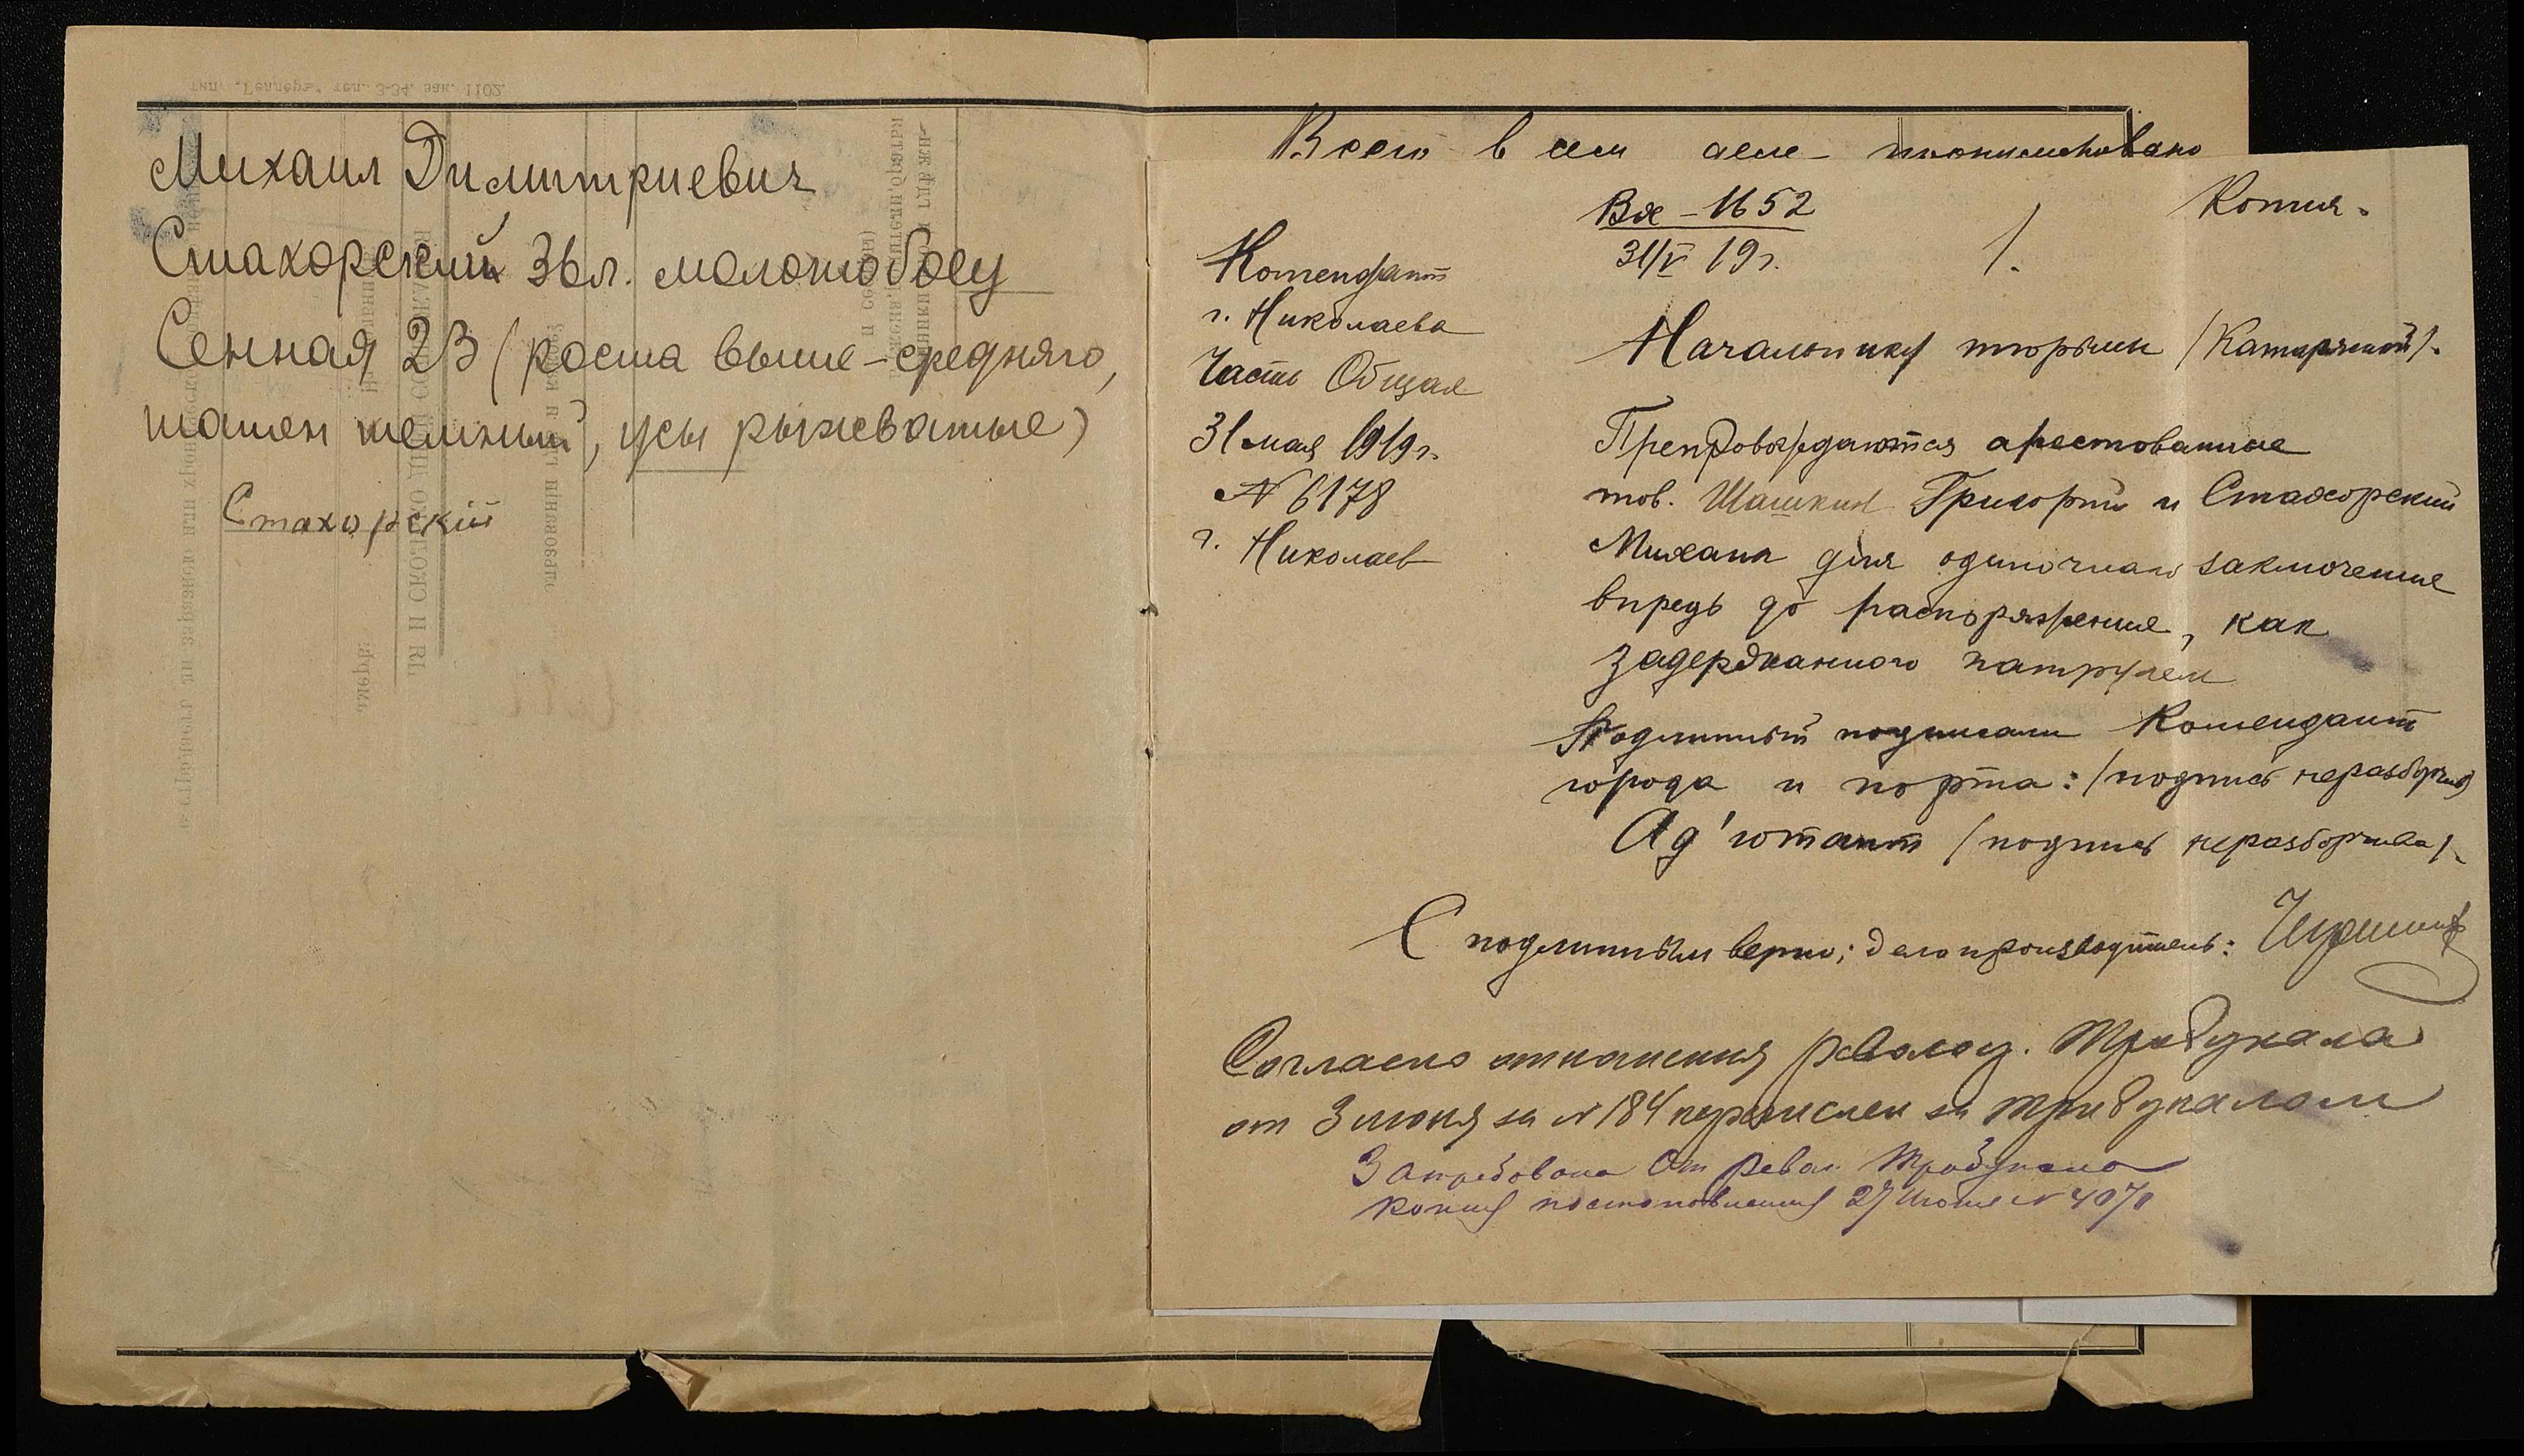 Михаил Димитриевич
Стахорский 36 л. молотобоец
Сенная 23 (роста выше-средняго,
шатен темный, усы рыжеватые)
Стахорскій
Всего в сем деле пронумеровано
Копия.
Вх - 1652
31/V 19 г.
1.
Комендант
г. Николаева
Часть Общая
31 мая 1919 г.
N 6178
г. Николаев
Начальнику тюрьмы /Каторжной/.
Препровождаются арестованные
тов. Шашкин Григорий и Стахорский
Михаил для одиночнаго заключение
впредь до распоряжение, как
задержанного патрулем
Подлинный подписали Комендант
города и порта: /подпись неразборчива/
Ад'ютант /подпись неразборчива/.
С подлинным верно; делопроизводитель:
Согласно отношения революц. Трибунала
от 3 июня за N 184 перечислен за Трибуналом
Затребована От Револ Трибунала
копия постановления 27 Июня N 4070
тип. „Геллеръ" тел. 3-34. зак. 1102.